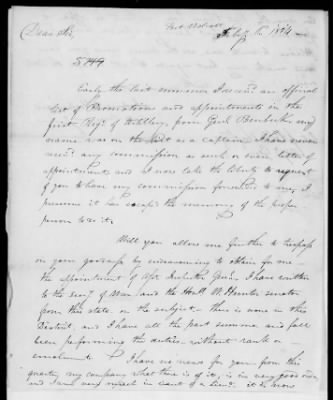 Fort Wolcott
July 6 1814
Dear Sir,
5744
Early the last summer I received an official
list of Promotions and appointments in the
first Regt of Artillery, from Genl Bomford my
name was on the list as a captain. I have never
recd any commission as such or even letter of
appointment and I now take the liberty to request
if you to have my commission forwarded to me, I
presume it has escaped the memory of the proper
person to do it.
Will you allow me further to trespass
on your goodness by endeavoring to obtain for me
the appointment of Asst Inspector Genl. I have written
to the secy of War and the Honl. W Hunter senator
from this state on the subject. there is none in this
District, and I have all the past summer and fall
been performing the duties without rank or
emolument. I have no news for you from this
quarter, my company what there is of it, is in very good order
and I am very much in want of a Lieut. it is now